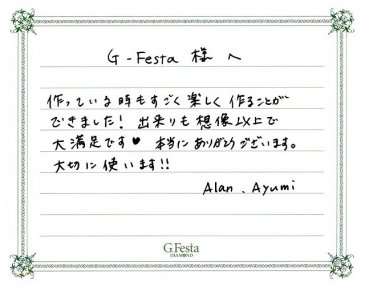 G-Festa 様へ
作っている時もすごく楽しく作ることが
できました！出来りも想像以上で
大満足です♥ 本当にありがとうございます。
大切に使います!!
Alan、Ayumi
G.Festa
DIAMOND